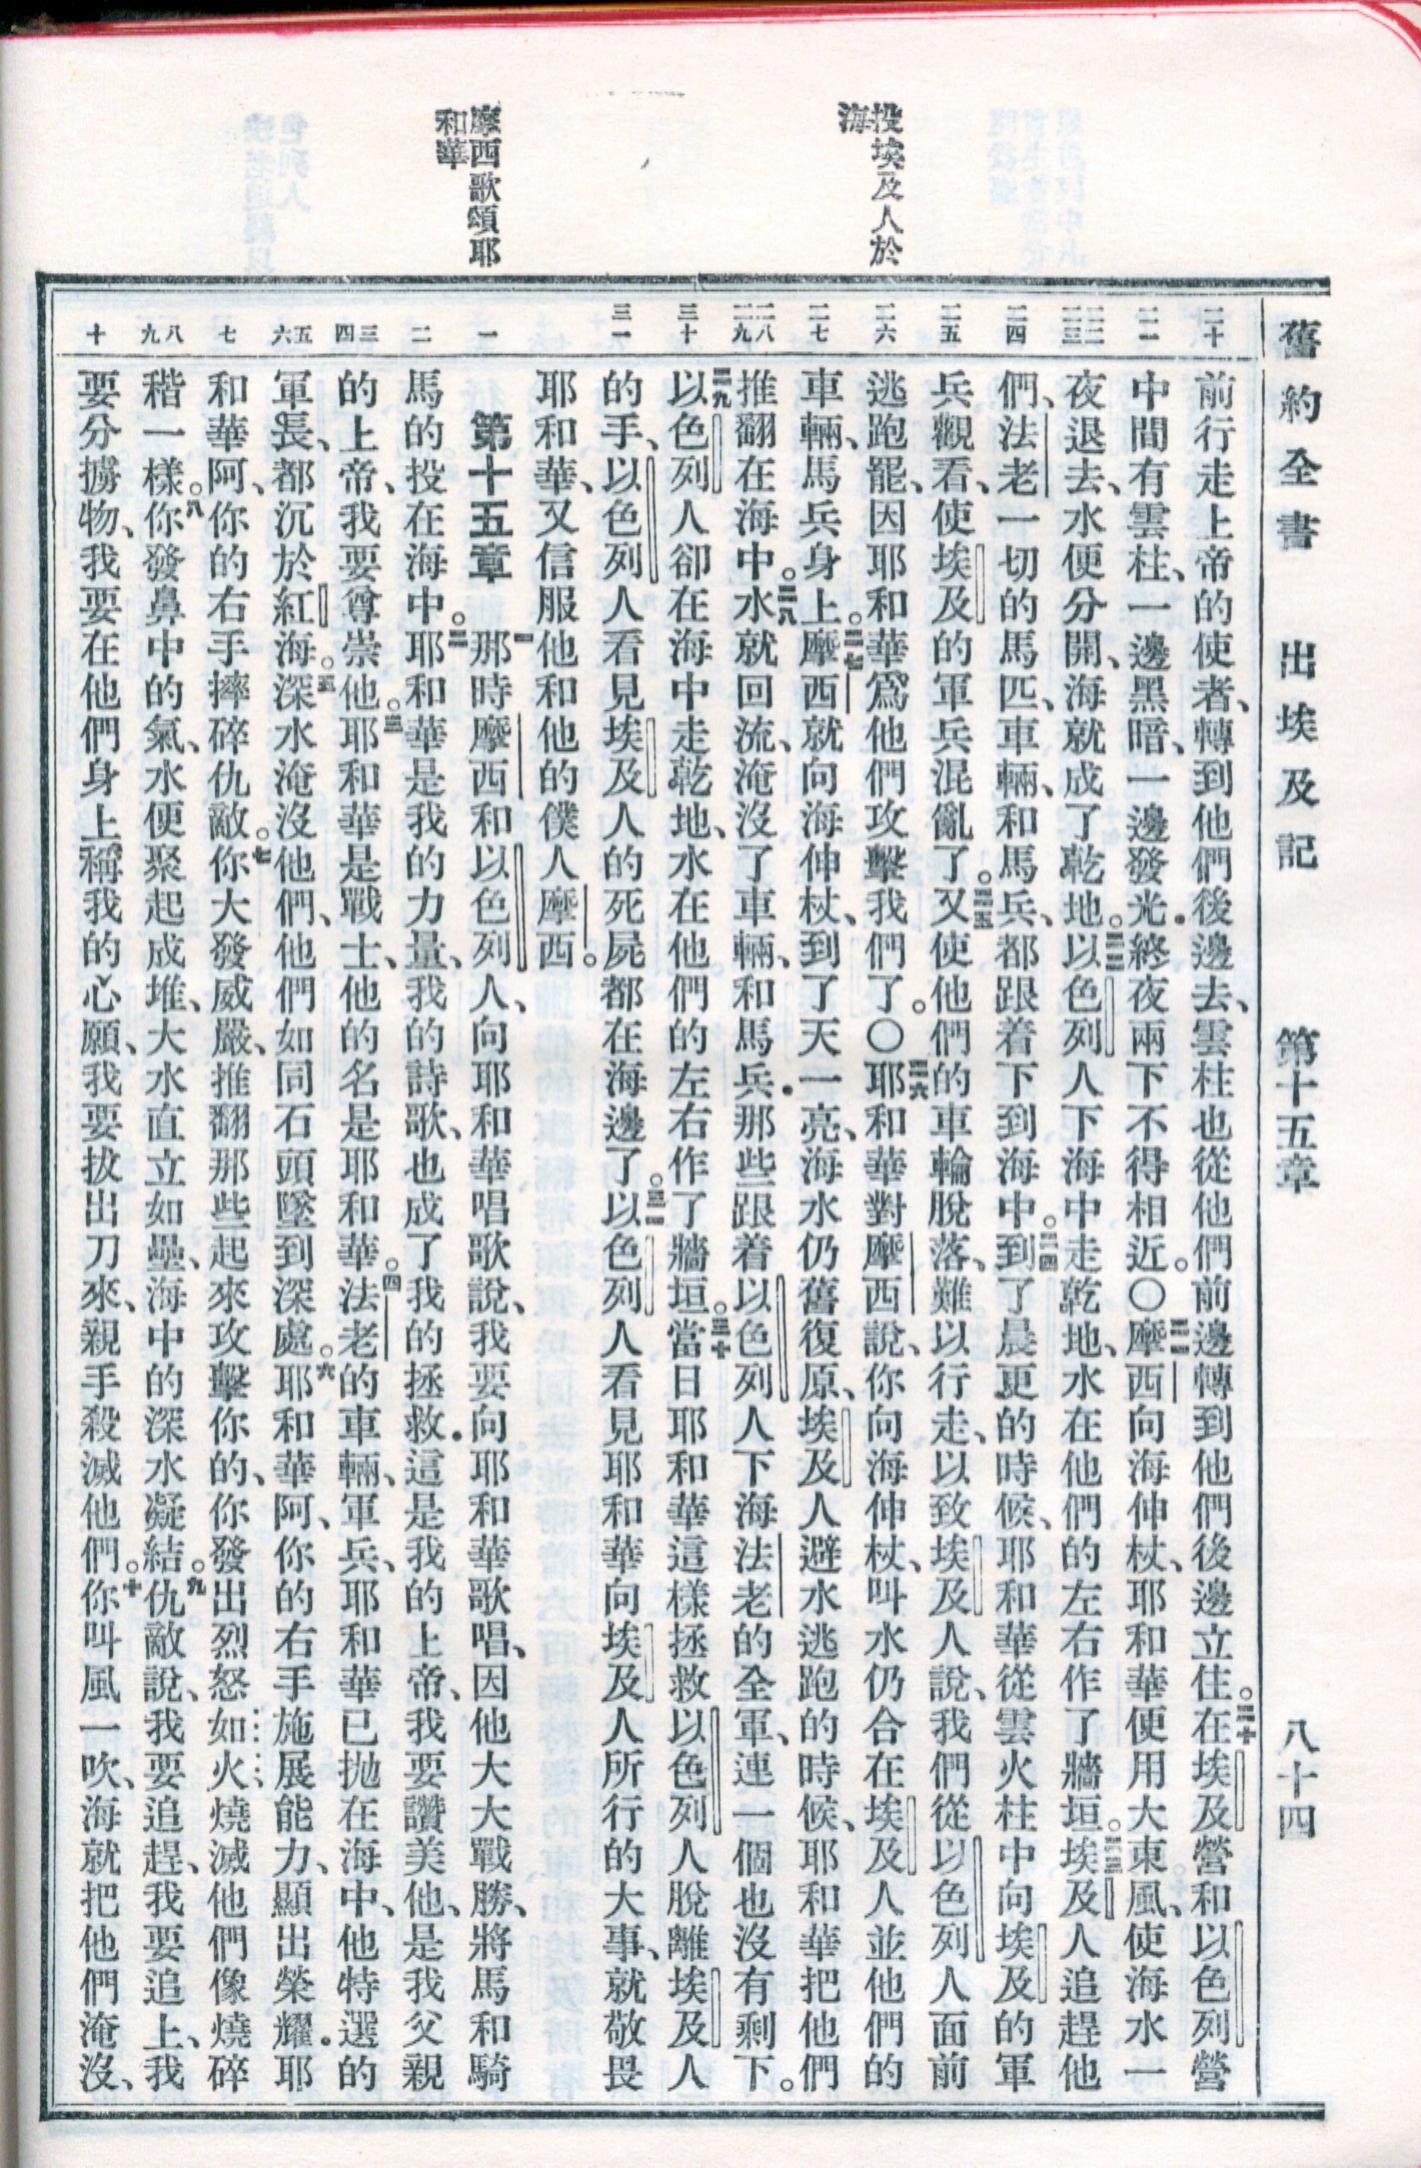 舊約全書　出埃及記　第十五章　八十四
投埃及人於
海
摩西歌頌耶
和華
二十
二一
二二
二三
二四
二五
二六
二七
二八
二九
三十
三一
一
二
三
四
五
六
七
八
九
十
前行走上帝的使者、轉到他們後邊去、雲柱也從他們前邊轉到他們後邊立住。二十在埃及營和以色列營
中間有雲柱、一邊黑暗、一邊發光．終夜兩下不得相近。〇二一摩西向海伸杖、耶和華便用大東風、使海水一
夜退去、水便分開、海就成了乾地。二二以色列人下海中走乾地、水在他們的左右作了牆垣。二三埃及人追趕他
們、法老一切的馬匹、車輛、和馬兵、都跟着下到海中。二四到了晨更的時候、耶和華從雲火柱中向埃及的軍
兵觀看、使埃及的軍兵混亂了。二五又使他們的車輪脫落、難以行走、以致埃及人說、我們從以色列人面前
逃跑罷、因耶和華爲他們攻擊我們了。〇二六耶和華對摩西說、你向海伸杖、叫水仍合在埃及人並他們的
車輛、馬兵身上。二七摩西就向海伸杖、到了天一亮、海水仍舊復原、埃及人避水逃跑的時候、耶和華把他們
推翻在海中。二八水就回流、淹沒了車輛、和馬兵．那些跟着以色列人下海法老的全軍、連一個也沒有剩下。
二九以色列人卻在海中走乾地、水在他們的左右作了牆垣。三十當日耶和華這樣拯救以色列人脫離埃及人
的手、以色列人看見埃及人的死屍都在海邊了。三一以色列人看見耶和華向埃及人所行的大事、就敬畏
耶和華、又信服他和他的僕人摩西。
第十五章　一那時摩西和以色列人、向耶和華唱歌說、我要向耶和華歌唱、因他大大戰勝、將馬和騎
馬的投在海中。二耶和華是我的力量、我的詩歌、也成了我的拯救．這是我的上帝、我要讚美他、是我父親
的上帝、我要尊崇他。三耶和華是戰士、他的名是耶和華。四法老的車輛、軍兵、耶和華已抛在海中、他特選的
軍長、都沉於紅海。五深水淹沒他們、他們如同石頭墜到深處。六耶和華阿、你的右手施展能力、顯出榮耀．耶
和華阿、你的右手摔碎仇敵。七你大發威嚴、推翻那些起來攻擊你的、你發出烈怒如火燒滅他們像燒碎
稭一樣。八你發鼻中的氣、水便聚起成堆、大水直立如壘、海中的深水凝結。九仇敵說、我要追趕、我要追上、我
要分擄物、我要在他們身上稱我的心願、我要拔出刀來、親手殺滅他們。十你叫風一吹、海就把他們淹沒、